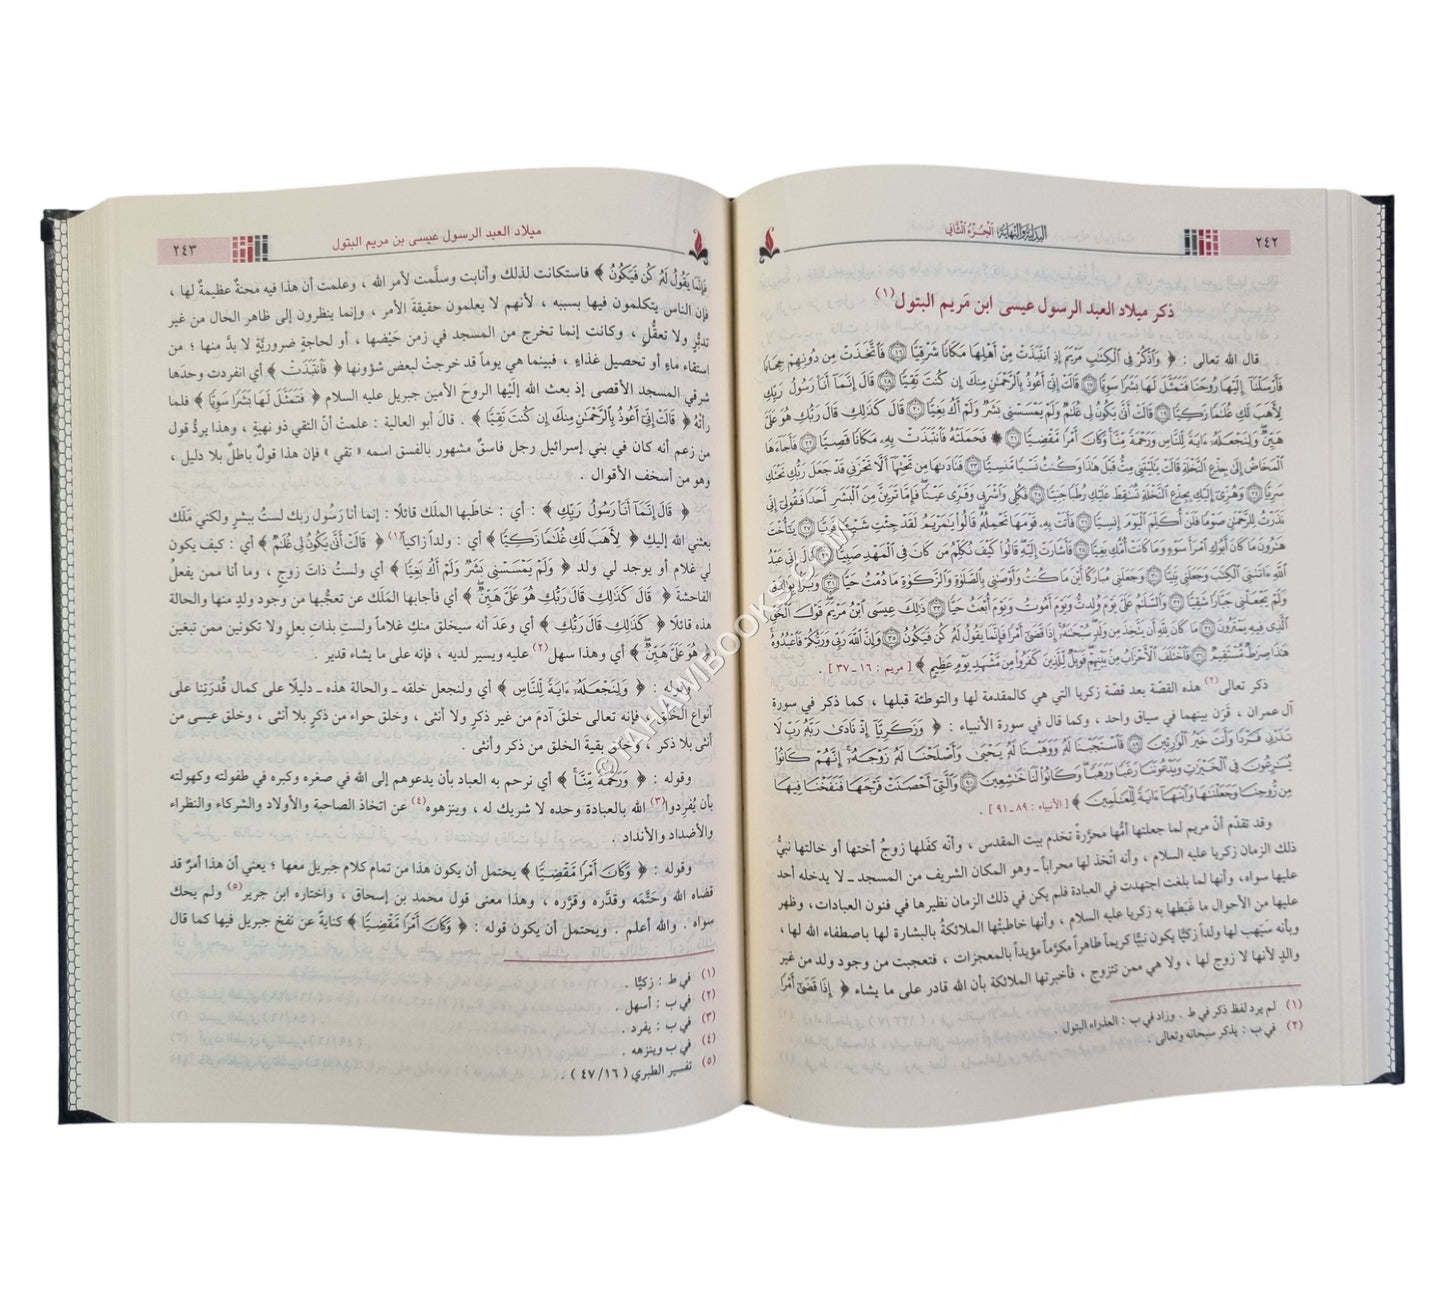 ٢٤٢
البداية والنهاية/ الجزء الثاني
ذكر ميلاد العبد الرسول عيسى ابن مَريم البتول(١)
قال الله تعالى : ﴿ وَاذْكُرْ فِي الْكِتَابِ مَرْيَمَ إِذِ انتَبَذَتْ مِنْ أَهْلِهَا مَكَانًا شَرْقِيًّا ﴿١٦﴾ فَاتَّخَذَتْ مِن دُونِهِمْ حِجَابًا
فَأَرْسَلْنَا إِلَيْهَا رُوحَنَا فَتَمَثَّلَ لَهَا بَشَرًا سَوِيًّا ﴿١٧﴾ قَالَتْ إِنِّي أَعُوذُ بِالرَّحْمَٰنِ مِنكَ إِن كُنتَ تَقِيًّا ﴿١٨﴾ قَالَ إِنَّمَا أَنَا رَسُولُ رَبِّكِ
لِأَهَبَ لَكِ غُلَامًا زَكِيًّا ﴿١٩﴾ قَالَتْ أَنَّىٰ يَكُونُ لِي غُلَامٌ وَلَمْ يَمْسَسْنِي بَشَرٌ وَلَمْ أَكُ بَغِيًّا ﴿٢٠﴾ قَالَ كَذَٰلِكِ قَالَ رَبُّكِ هُوَ عَلَيَّ
هَيِّنٌ وَلِنَجْعَلَهُ آيَةً لِّلنَّاسِ وَرَحْمَةً مِّنَّا وَكَانَ أَمْرًا مَّقْضِيًّا ﴿٢١﴾ ۞ فَحَمَلَتْهُ فَانتَبَذَتْ بِهِ مَكَانًا قَصِيًّا ﴿٢٢﴾ فَأَجَاءَهَا
الْمَخَاضُ إِلَىٰ جِذْعِ النَّخْلَةِ قَالَتْ يَا لَيْتَنِي مِتُّ قَبْلَ هَٰذَا وَكُنتُ نَسْيًا مَّنسِيًّا ﴿٢٣﴾ فَنَادَاهَا مِن تَحْتِهَا أَلَّا تَحْزَنِي قَدْ جَعَلَ رَبُّكِ تَحْتَكِ
سَرِيًّا ﴿٢٤﴾ وَهُزِّي إِلَيْكِ بِجِذْعِ النَّخْلَةِ تُسَاقِطْ عَلَيْكِ رُطَبًا جَنِيًّا ﴿٢٥﴾ فَكُلِي وَاشْرَبِي وَقَرِّي عَيْنًا فَإِمَّا تَرَيِنَّ مِنَ الْبَشَرِ أَحَدًا فَقُولِي إِنِّي
نَذَرْتُ لِلرَّحْمَٰنِ صَوْمًا فَلَنْ أُكَلِّمَ الْيَوْمَ إِنسِيًّا ﴿٢٦﴾ فَأَتَتْ بِهِ قَوْمَهَا تَحْمِلُهُ قَالُوا يَا مَرْيَمُ لَقَدْ جِئْتِ شَيْئًا فَرِيًّا ﴿٢٧﴾ يَا أُخْتَ
هَارُونَ مَا كَانَ أَبُوكِ امْرَأَ سَوْءٍ وَمَا كَانَتْ أُمُّكِ بَغِيًّا ﴿٢٨﴾ فَأَشَارَتْ إِلَيْهِ قَالُوا كَيْفَ نُكَلِّمُ مَن كَانَ فِي الْمَهْدِ صَبِيًّا ﴿٢٩﴾ قَالَ إِنِّي عَبْدُ
اللَّهِ آتَانِيَ الْكِتَابَ وَجَعَلَنِي نَبِيًّا ﴿٣٠﴾ وَجَعَلَنِي مُبَارَكًا أَيْنَ مَا كُنتُ وَأَوْصَانِي بِالصَّلَاةِ وَالزَّكَاةِ مَا دُمْتُ حَيًّا ﴿٣١﴾ وَبَرًّا بِوَالِدَتِي
وَلَمْ يَجْعَلْنِي جَبَّارًا شَقِيًّا ﴿٣٢﴾ وَالسَّلَامُ عَلَيَّ يَوْمَ وُلِدتُّ وَيَوْمَ أَمُوتُ وَيَوْمَ أُبْعَثُ حَيًّا ﴿٣٣﴾ ذَٰلِكَ عِيسَى ابْنُ مَرْيَمَ قَوْلَ الْحَقِّ
الَّذِي فِيهِ يَمْتَرُونَ ﴿٣٤﴾ مَا كَانَ لِلَّهِ أَن يَتَّخِذَ مِن وَلَدٍ سُبْحَانَهُ إِذَا قَضَىٰ أَمْرًا فَإِنَّمَا يَقُولُ لَهُ كُن فَيَكُونُ ﴿٣٥﴾ وَإِنَّ اللَّهَ رَبِّي وَرَبُّكُمْ فَاعْبُدُوهُ
هَٰذَا صِرَاطٌ مُّسْتَقِيمٌ ﴿٣٦﴾ فَاخْتَلَفَ الْأَحْزَابُ مِن بَيْنِهِمْ فَوَيْلٌ لِّلَّذِينَ كَفَرُوا مِن مَّشْهَدِ يَوْمٍ عَظِيمٍ ﴾ [ مريم : ١٦ـ٣٧ ] .
ذكر تعالى(٢) هذه القصّة بعد قصّة زكريا التي هي كالمقدمة لها والتوطئة قبلها ، كما ذكر في سورة
آل عمران ، قَرَن بينهما في سياق واحد ، وكما قال في سورة الأنبياء : ﴿ وَزَكَرِيَّا إِذْ نَادَىٰ رَبَّهُ رَبِّ لَا
تَذَرْنِي فَرْدًا وَأَنتَ خَيْرُ الْوَارِثِينَ ﴿٨٩﴾ فَاسْتَجَبْنَا لَهُ وَوَهَبْنَا لَهُ يَحْيَىٰ وَأَصْلَحْنَا لَهُ زَوْجَهُ إِنَّهُمْ كَانُوا
يُسَارِعُونَ فِي الْخَيْرَاتِ وَيَدْعُونَنَا رَغَبًا وَرَهَبًا وَكَانُوا لَنَا خَاشِعِينَ ﴿٩٠﴾ وَالَّتِي أَحْصَنَتْ فَرْجَهَا فَنَفَخْنَا فِيهَا
مِن رُّوحِنَا وَجَعَلْنَاهَا وَابْنَهَا آيَةً لِّلْعَالَمِينَ ﴾ [ الأنبياء : ٨٩ـ٩١ ] .
وقد تقدّم أنّ مريم لما جعلتها أمُّها محرَّرةً تخدم بيت المقدس ، وأنّه كفَلها زوجُ أختها أو خالتها نبيُّ
ذلك الزمان زكريا عليه السلام ، وأنه اتّخذ لها محراباً ـ وهو المكان الشريف من المسجد ـ لا يدخله أحد
عليها سواه، وأنها لما بلغت اجتهدت في العبادة فلم يكن في ذلك الزمان نظيرها في فنون العبادات، وظهر
عليها من الأحوال ما غَبَطها به زكريا عليه السلام ، وأنها خاطبتْها الملائكةُ بالبشارة لها باصطفاء الله لها،
وبأنه سيَهب لها ولداً زكيًّا يكون نبيًّا كريماً طاهراً مكرّماً مؤيداً بالمعجزات ، فتعجبت من وجود ولد من غير
والدٍ لأنها لا زوج لها ، ولا هي ممن تتزوج ، فأخبرتها الملائكة بأن الله قادر على ما يشاء ﴿ إِذَا قَضَىٰ أَمْرًا
(١) لم يرد لفظ ذكر في ط . وزاد في ب : العذراء البتول .
(٢) في ب : يذكر سبحانه وتعالى .
ميلاد العبد الرسول عيسى بن مريم البتول
٢٤٣
فَإِنَّمَا يَقُولُ لَهُ كُن فَيَكُونُ ﴾ فاستكانت لذلك وأنابت وسلَّمت لأمر الله ، وعلمت أن هذا فيه محنةٌ عظيمةٌ لها ،
فإن الناس يتكلمون فيها بسببه ، لأنهم لا يعلمون حقيقةَ الأمر ، وإنما ينظرون إلى ظاهر الحال من غير
تدبُّرٍ ولا تعقُّلٍ ، وكانت إنما تخرج من المسجد في زمن حَيْضها ، أو لحاجةٍ ضروريّةٍ لا بدَّ منها ؛ من
استقاء ماءٍ أو تحصيل غذاءٍ ، فبينما هي يوماً قد خرجتْ لبعض شؤونها ﴿ فَانتَبَذَتْ ﴾ أي انفردت وحدَها
شرقي المسجد الأقصى إذ بعث الله إليْها الروحَ الأمين جبريل عليه السلام ﴿ فَتَمَثَّلَ لَهَا بَشَرًا سَوِيًّا ﴾ فلما
رأتْهُ ﴿ قَالَتْ إِنِّي أَعُوذُ بِالرَّحْمَٰنِ مِنكَ إِن كُنتَ تَقِيًّا ﴾ . قال أبو العالية : علمتْ أنّ التقي ذو نهيةٍ ، وهذا يردُّ قول
من زعم أنه كان في بني إسرائيل رجل فاسقٌ مشهور بالفسق اسمه « تقي » فإن هذا قولٌ باطلٌ بلا دليل ،
وهو من أسخف الأقوال .
﴿ قَالَ إِنَّمَا أَنَا رَسُولُ رَبِّكِ ﴾ : أي : خاطَبها الملَك قائلًا : إنما أنا رَسُول ربك لستُ ببشرٍ ولكني مَلَك
بعثني الله إليكِ ﴿ لِأَهَبَ لَكِ غُلَامًا زَكِيًّا ﴾ أي : ولداً زاكياً(١) ﴿ قَالَتْ أَنَّىٰ يَكُونُ لِي غُلَامٌ ﴾ أي : كيف يكون
لي غلام أو يوجد لي ولد ﴿ وَلَمْ يَمْسَسْنِي بَشَرٌ وَلَمْ أَكُ بَغِيًّا ﴾ أي ولستُ ذاتَ زوجٍ ، وما أنا ممن يفعلُ
الفاحشة ﴿ قَالَ كَذَٰلِكِ قَالَ رَبُّكِ هُوَ عَلَيَّ هَيِّنٌ ﴾ أي فأجابها المَلَك عن تعجُّبها من وجود ولدٍ منها والحالة
هذه قائلًا ﴿ كَذَٰلِكِ قَالَ رَبُّكِ ﴾ أي وعَدَ أنه سيخلق منكِ غلاماً ولستِ بذاتِ بعلٍ ولا تكونين ممن تبغين
﴿ هُوَ عَلَيَّ هَيِّنٌ ﴾ أي وهذا سهل(٢) عليه ويسير لديه ، فإنه على ما يشاء قدير .
وقوله : ﴿ وَلِنَجْعَلَهُ آيَةً لِّلنَّاسِ ﴾ أي ولنجعل خلقه ـ والحالة هذه ـ دليلًا على كمال قُدرَتِنا على
أنواع الخلق ، فإنه تعالى خلقَ آدمَ من غير ذكرٍ ولا أنثى ، وخلق حواء من ذكرٍ بلا أنثى ، وخلق عيسى من
أنثى بلا ذكر ، وخلق بقيةَ الخلق من ذكر وأنثى .
وقوله : ﴿ وَرَحْمَةً مِّنَّا ﴾ أي نرحم به العباد بأن يدعوهم إلى الله في صغره وكبره في طفولته وكهولته
بأن يُفرِدوا(٣) الله بالعبادة وحده لا شريك له ، وينزهوه(٤) عن اتخاذ الصاحبة والأولاد والشركاء والنظراء
والأضداد والأنداد .
وقوله : ﴿ وَكَانَ أَمْرًا مَّقْضِيًّا ﴾ يحتمل أن يكون هذا من تمام كلام جبريل معها ؛ يعني أن هذا أمرٌ قد
قضاه الله وحَتَّمَه وقدَّره وقرَّره ، وهذا معنى قول محمد بن إسحاق ، واختاره ابن جرير(٥) ولم يحك
سواه . والله أعلم . ويحتمل أن يكون قوله : ﴿ وَكَانَ أَمْرًا مَّقْضِيًّا ﴾ كنايةٌ عن نفخ جبريل فيها كما قال
(١) في ط : زكيًّا .
(٢) في ب : أسهل .
(٣) في ب : يفرد .
(٤) في ب وينزهه .
(٥) تفسير الطبري ( ١٦/ ٤٧ ) .
©TAHAWIBOOKS.COM